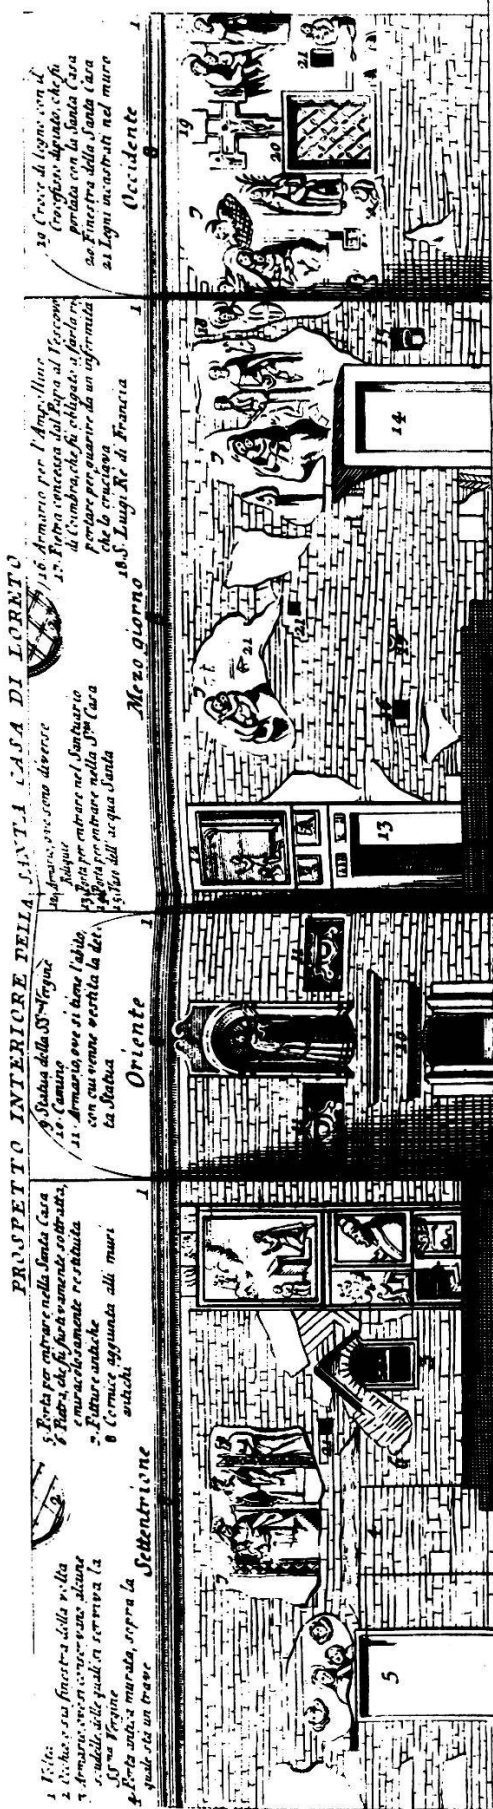 PROSPETTO INTERIORE DELLA SANTA CASA DI LORETO
1 Volta
2 Occhio, o sia finestra della volta
3 Armario, ove si conservano alcune
scudelle, delle quali si serviva la
SS.ma Vergine
4 Porta antica murata, sopra la
quale sta un trave
Settentrione
5. Porta per entrare nella Santa Casa
6 Pietra, che fu furtivamente sottratta,
e miracolosamente restituita
7. Pitture antiche
8 Cornice aggiunta alli muri
antichi
9 Statua della SS. Vergine
10. Camino
11. Armario, ove si tiene l'abito,
con cui venne vestita la det
ta Statua
Oriente
12. Armario, ove sono diverse
Reliquie
13. Porta per entrare nel Santuario
14. Porta per entrare nella S.ta Casa
15. Vaso dell' acqua Santa
Mezo giorno
16. Armario per l'Ampolline
17. Pietra concessa dal Papa al Vescovo
di Coimbra, che fu obligato a farla ri
portare per guarire da un infermita
che lo cruciava
18. S. Luigi Re di Francia
19 Croce di legno con il
Crocefisso dipinto, che fu
portata con la Santa Casa
20 Finestra della Santa Casa
21 Legni incastrati nel muro
Occidente
1
1
1
1
5
7
6
21
3
11
10
11
12
13
7
21
16
21
7
18
14
15
7
19
20
21